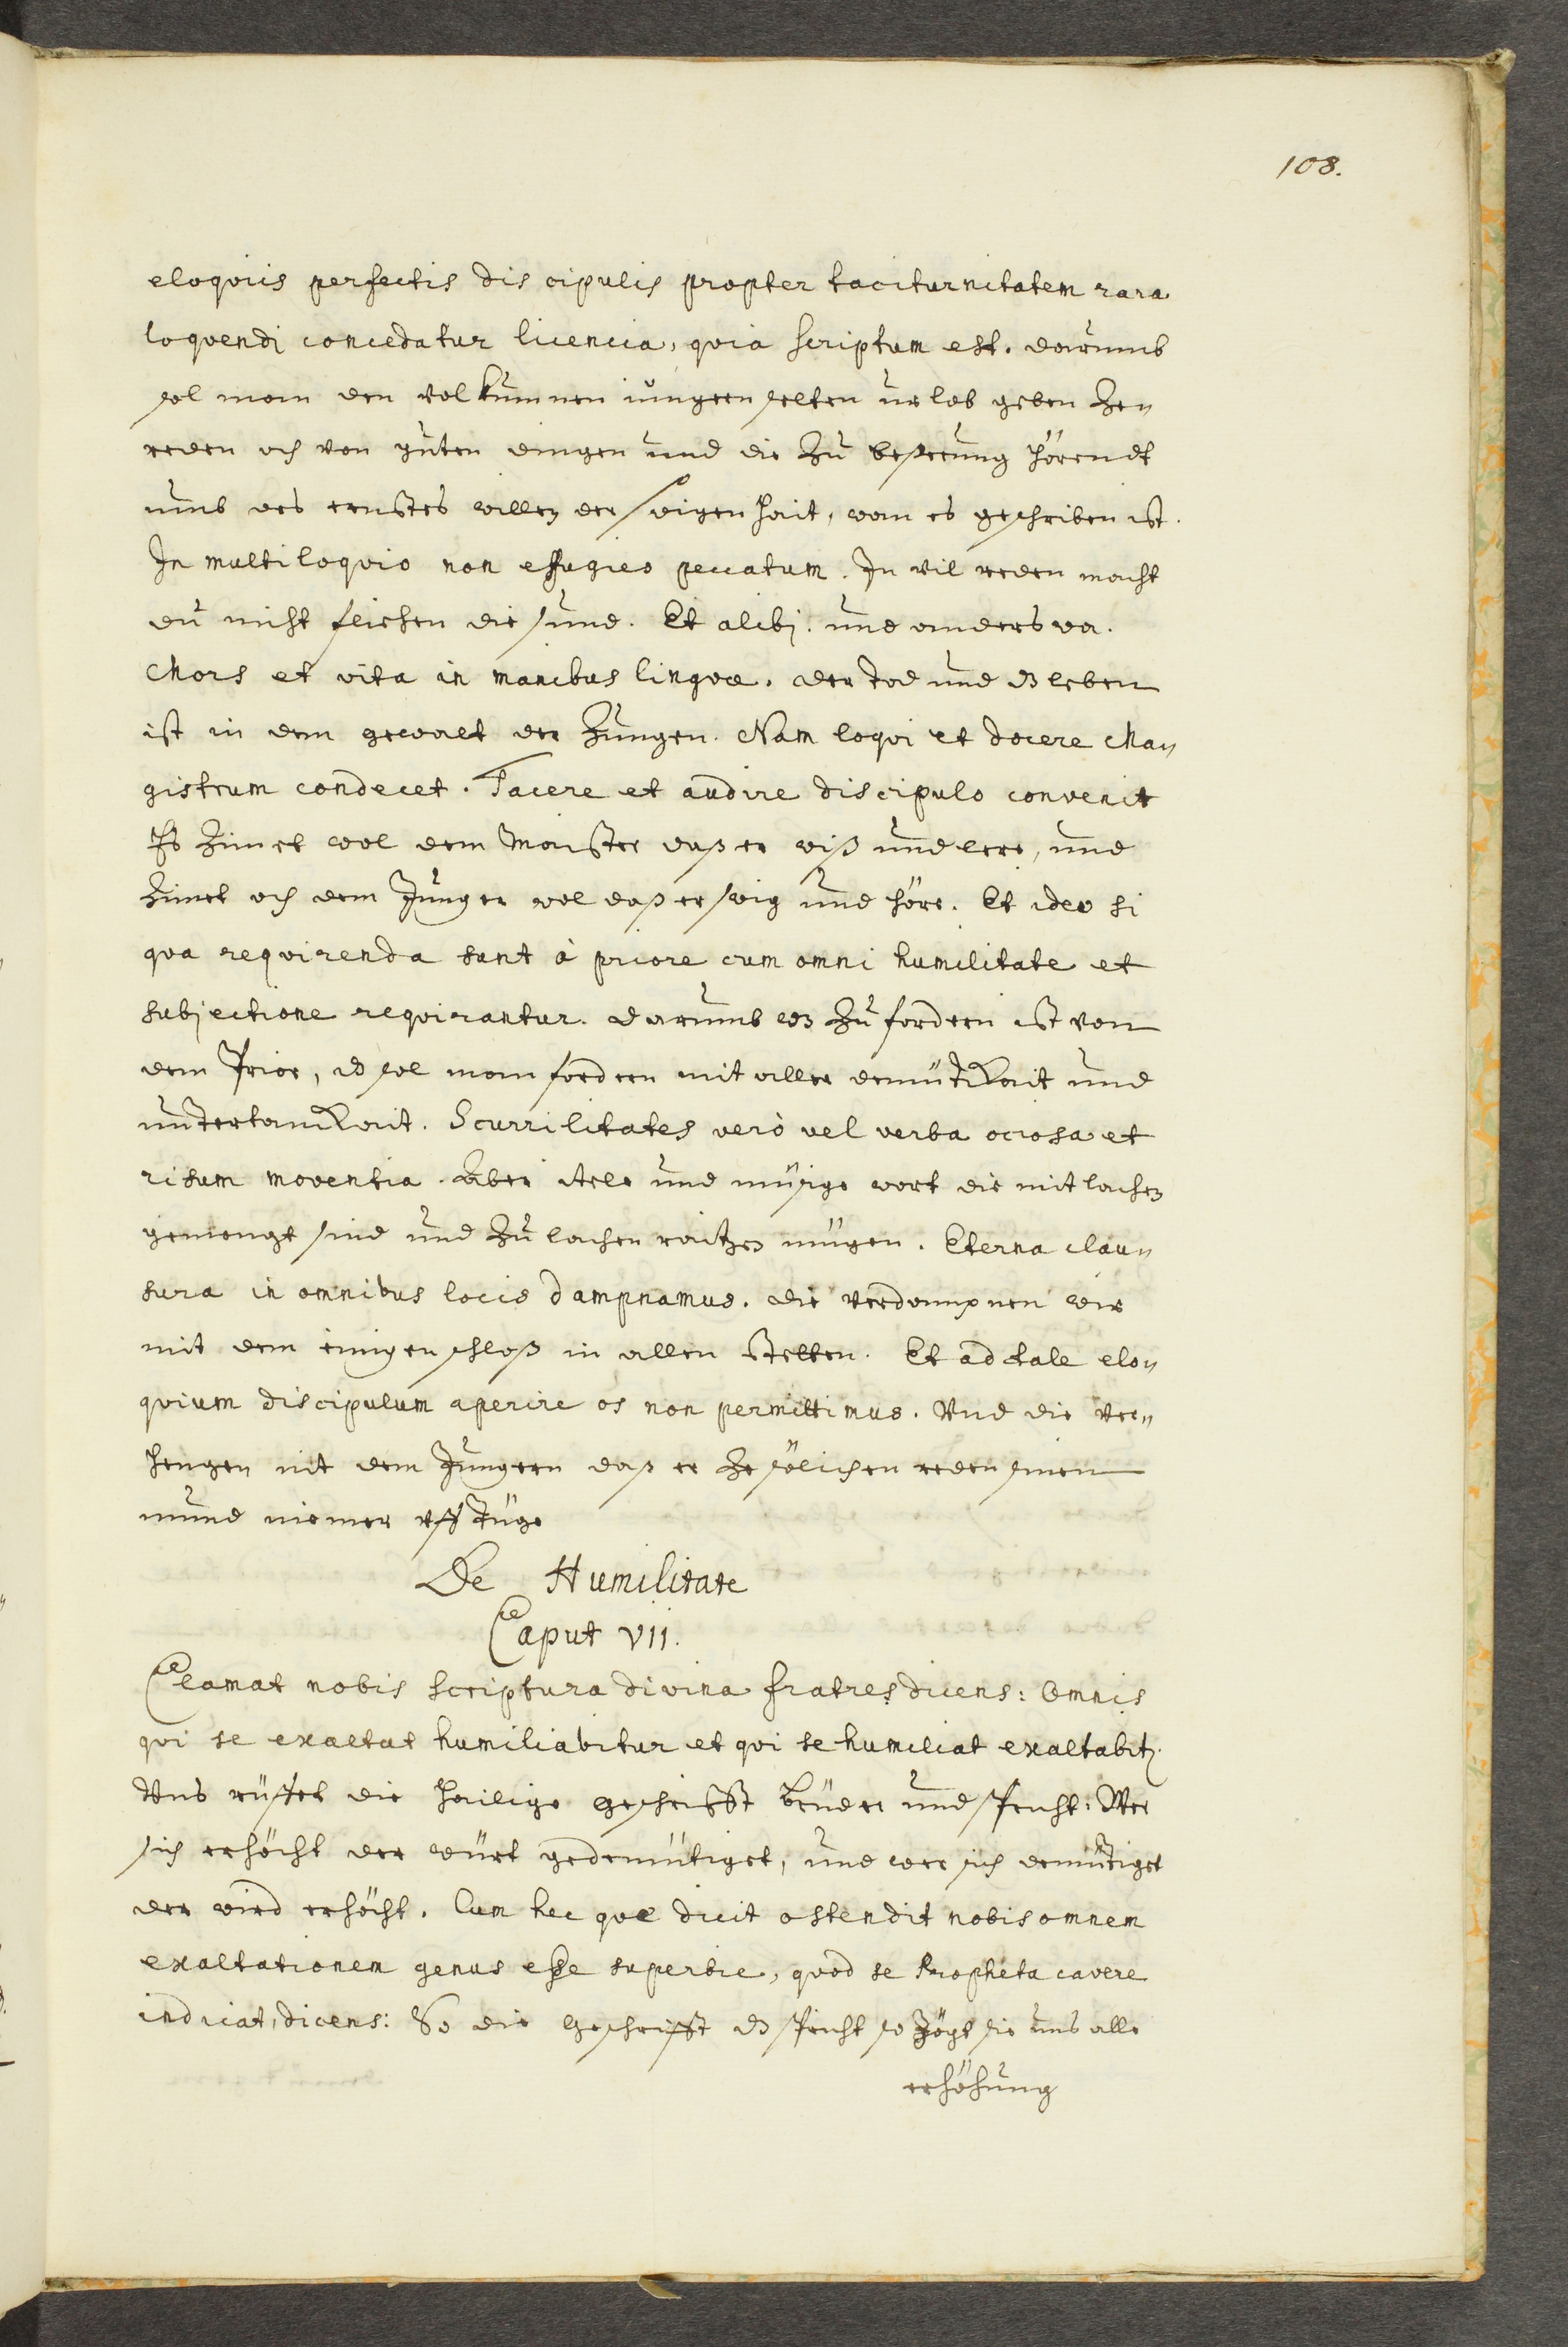 108.
eloqviis perfectis dis cipulis propter taciturnitatem rara
loqvendj concedatur licencia, qvia scriptum est. darumb
sol man den volkumnen iungern selten urlob geben ze„
reden och von guten dingen und die zu besserung hörendt
umb des ernstes willen der swigenhait, wan es geschriben ist.
In multiloqvio non effugies peccatum. In vil reden macht
du nicht fliehen die sund. Et alibj. und anderswa.
Mors et vita in manibus lingvæ. der tod und dz leben
ist in dem gewalt der zungen. Nam loqvi et docere Ma„
gistrum condecet. Tacere et audire discipulo convenit
Es zimet wol dem Maister daß er wiß und lere, und
zimet och dem Junger wol daß er swig und höre. Et ideo si
qva reqvirenda sunt à priore cum omni humilitate et
subjectione reqvirantur. darumb wz zu fordern ist von
dem Prior, dz sol man fordern mit aller demütikait und
untertanikait. Scurrilitates verò vel verba ociosa et
risum moventia. Aber itele und müsige wort die mit lachen
gemengt sind und zu lachen raitzen mügen. Eterna clau„
sura in omnibus locis dampnamus. die verdampnen wir
mit dem ewigen schloß in allen stetten. Et ad tale elo„
qvium discipulum aperire os non permittimus. Und die ver„
hengen nit dem Jungern daß er ze sölichen reden sinen
mund niemer uff tüge
De Humilitate
Caput VII.
Clamat nobis scriptura divina fratres dicens: Omnis
qvi se exaltat humiliabitur et qvi se humiliat exaltabitr.
Uns rüffet die hailige geschrifft brüder und spricht: Wer
sich erhöcht der würt gedemütiget, und wer sich demütiget
der wird erhöcht. Cum hec qvæ dicit ostendit nobis omnem
exaltationem genus esse superbie, qvod se Propheta cavere
indicat, dicens: So die geschrifft dz spricht so zögt sie uns alle
erhöhung